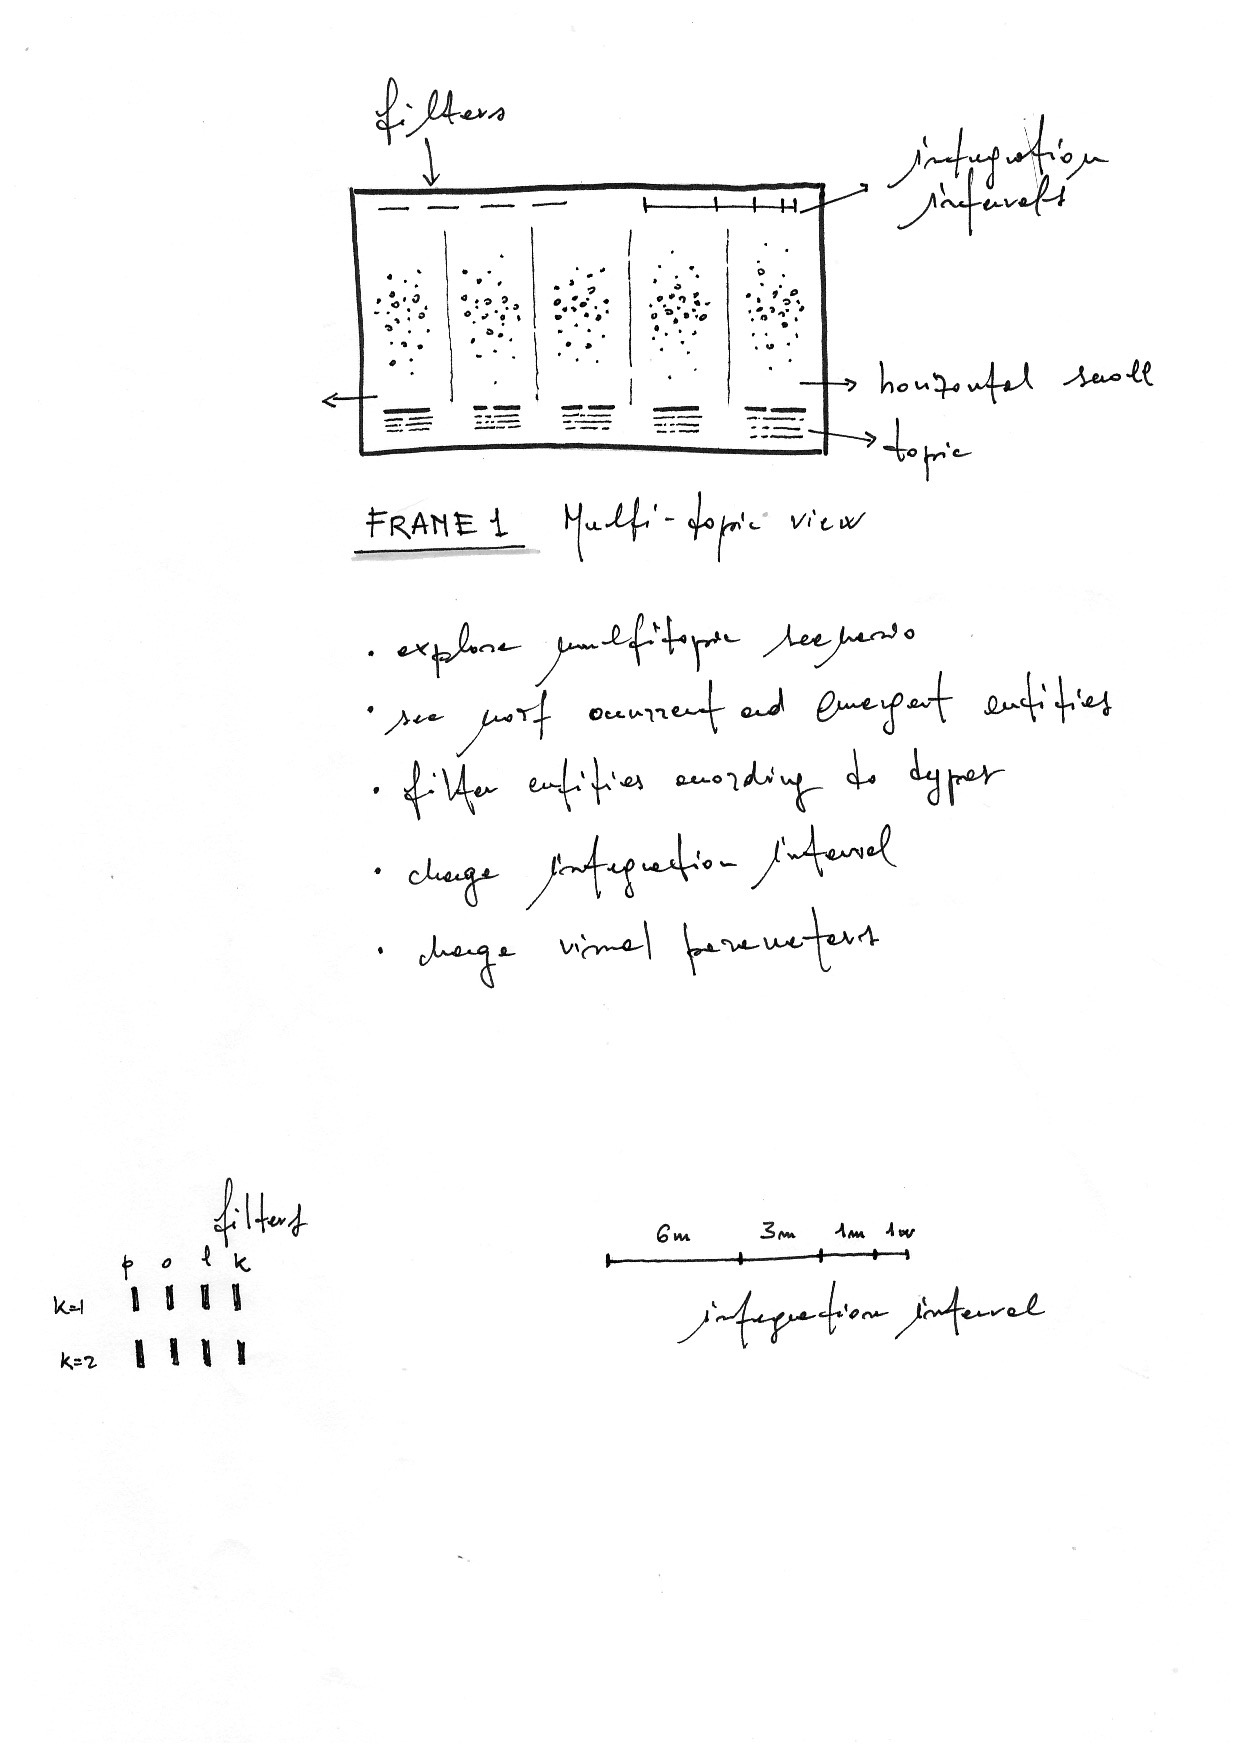 filters
integration
intervals
horizontal scroll
topic
FRAME 1 Multi-topic view
· explore multitopic scenario
· see most occurrent and emergent entities
· filter entities according to types
· change integration interval
· change visual parameters
filters
p o l k
k=1
k=2
6m 3m 1m 1w
integration interval